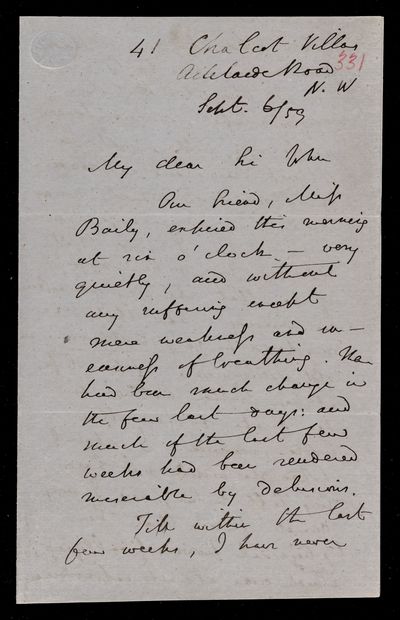 41 Chalcot Villas
Adelaide Road
331
N. W
Sept. 6/59
My dear Sir John
Our friend, Miss
Baily, expired this morning
at six o'clock — very
quietly, and without
any suffering except
mere weakness and un-
easiness of breathing. There
had been much change in
the few last days: and
much of the last few
weeks had been rendered
miserable by delusions.
Till within the last
few weeks, I have never